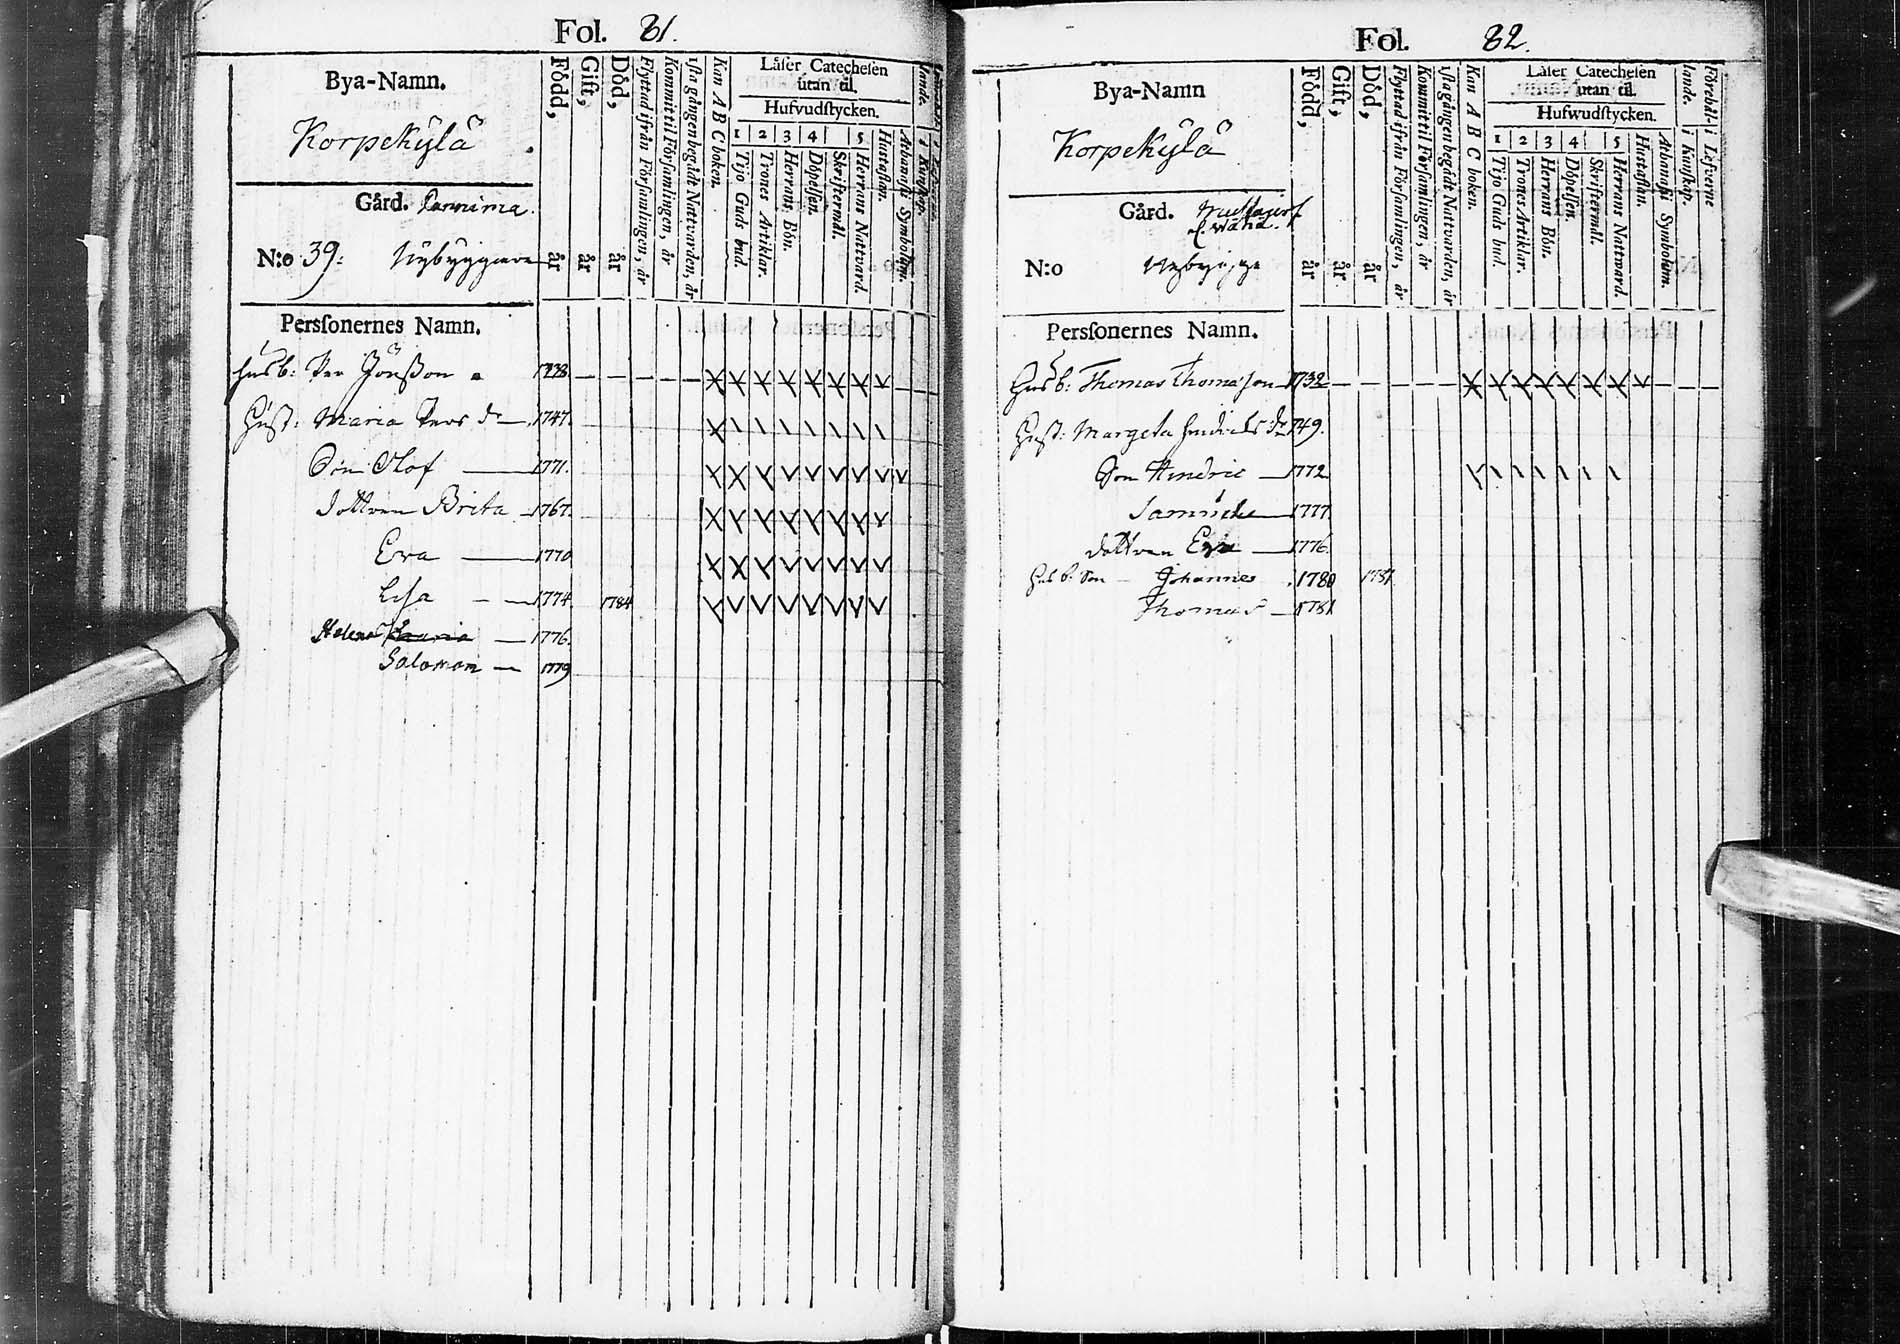 Fol. 81.
Bya-Namn.
Korpekylä
Gård. Pannima.
N:o 39: Nybyggare
Född, år
Gift, år
Död, år
Flyttad ifrån Församlingen, år
Kommit til Församlingen, år
1sta gången begådt Nattvarden, år
Kan A B C boken.
Läser Catechesen utan til.
Hufvudstycken.
1 2 3 4 5
Tijo Guds bud.
Trones Artiklar.
Herrans Bön.
Döpelsen.
Skriftermål.
Herrans Nattvard.
Hustaflan.
Athanasii Symbolum.
Persfonernes Namn.
Husb: Per Jönsson 1738
Hust: Maria Pers dr 1747.
Son Olof 1771.
dottren Brita 1767.
Eva 1770
Lisa 1774 1784
Helena Maria 1776.
Salomon 1779
Fol. 82.
Bya-Namn
Korpekylä
Gård.
N:o Nybygge
Född, år
Gift, år
Död, år
Flyttad ifrån Församlingen, år
Kommit til Församlingen, år
1sta gången begådt Nattvarden, år
Kan A B C boken.
Läser Catechesen utan til.
Hufwudstycken.
1 2 3 4 5
Tijo Guds bud.
Trones Artiklar.
Herrans Bön.
Döpelsen.
Skriftermål.
Herrans Nattvard.
Hustaflan.
Athanasii Symbolum.
lande. i Kunskap.
Förehål- i Lefverne
Persfonernes Namn.
Husb: Thomas Thomasson 1732
Hust: Margeta Hindrics dr 1749.
Son Hindric 1772
1777
dottren Eva 1776.
Husb: Son Johannes 1780 1781
Thomas 1781